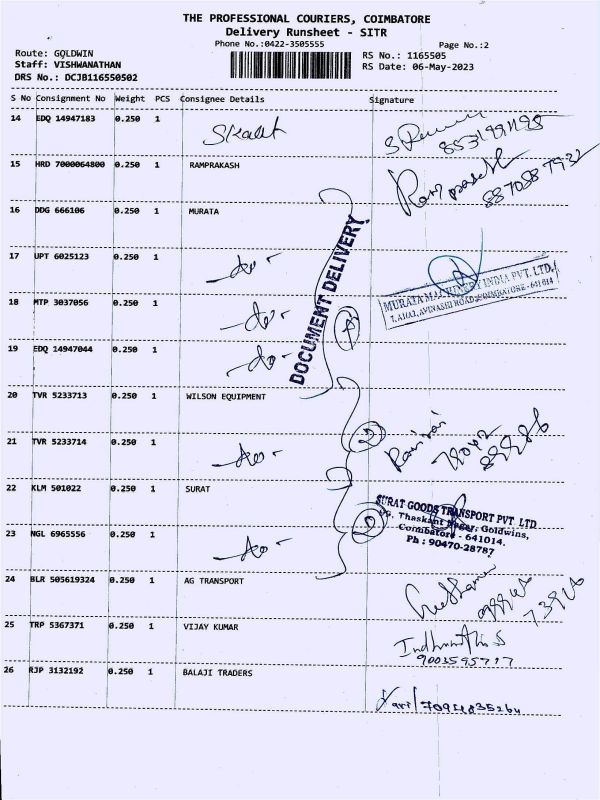 THE PROFESSIONAL COURIERS, COIMBATORE
Delivery Runsheet - SITR
Phone No.:0422-3505555 Page No.:2
Route: GOLDWIN RS No.: 1165505
Staff: VISHWANATHAN RS Date: 06-May-2023
DRS No.: DCJB116550502
S No Consignment No Weight PCS Consignee Details Signature
14 EDQ 14947183 0.250 1
15 HRD 7000064800 0.250 1 RAMPRAKASH
Ramprakash
16 DDG 666106 0.250 1 MURATA
DOCUMENT DELIVERY
17 UPT 6025123 0.250 1 -do-
MURATA MACHINERY INDIA PVT. LTD.,
AVINASHI ROAD, COIMBATORE - 641014
18 MTP 3037056 0.250 1 -do-
19 EDQ 14947044 0.250 1 -do-
20 TVR 5233713 0.250 1 WILSON EQUIPMENT
21 TVR 5233714 0.250 1 -do-
22 KLM 501022 0.250 1 SURAT
SURAT GOODS TRANSPORT PVT LTD
Nagar, Goldwins,
Coimbatore - 641014.
Ph : 90470-28787
23 NGL 6965556 0.250 1 -do-
24 BLR 505619324 0.250 1 AG TRANSPORT
25 TRP 5367371 0.250 1 VIJAY KUMAR
9003595717
26 RJP 3132192 0.250 1 BALAJI TRADERS